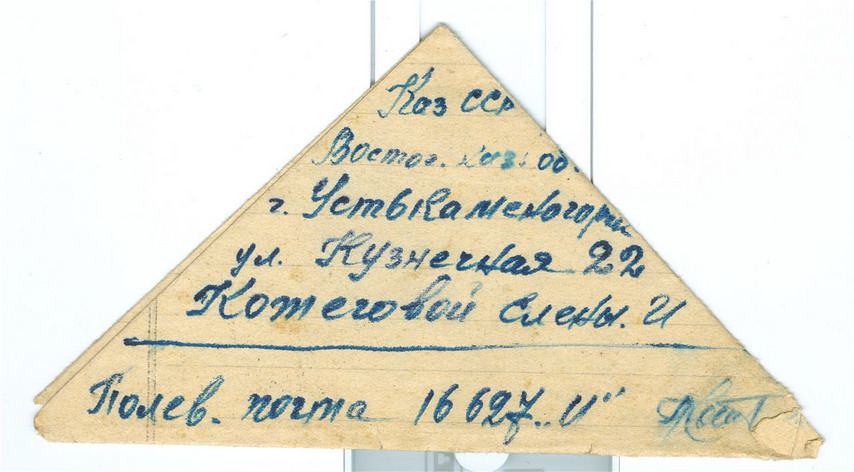 Каз ССР
Восточ. каз. об.
г. Устькаменогорск
ул. Кузнечная 22
Кожеговой Елены. И
Полев. почта 16627 „И"